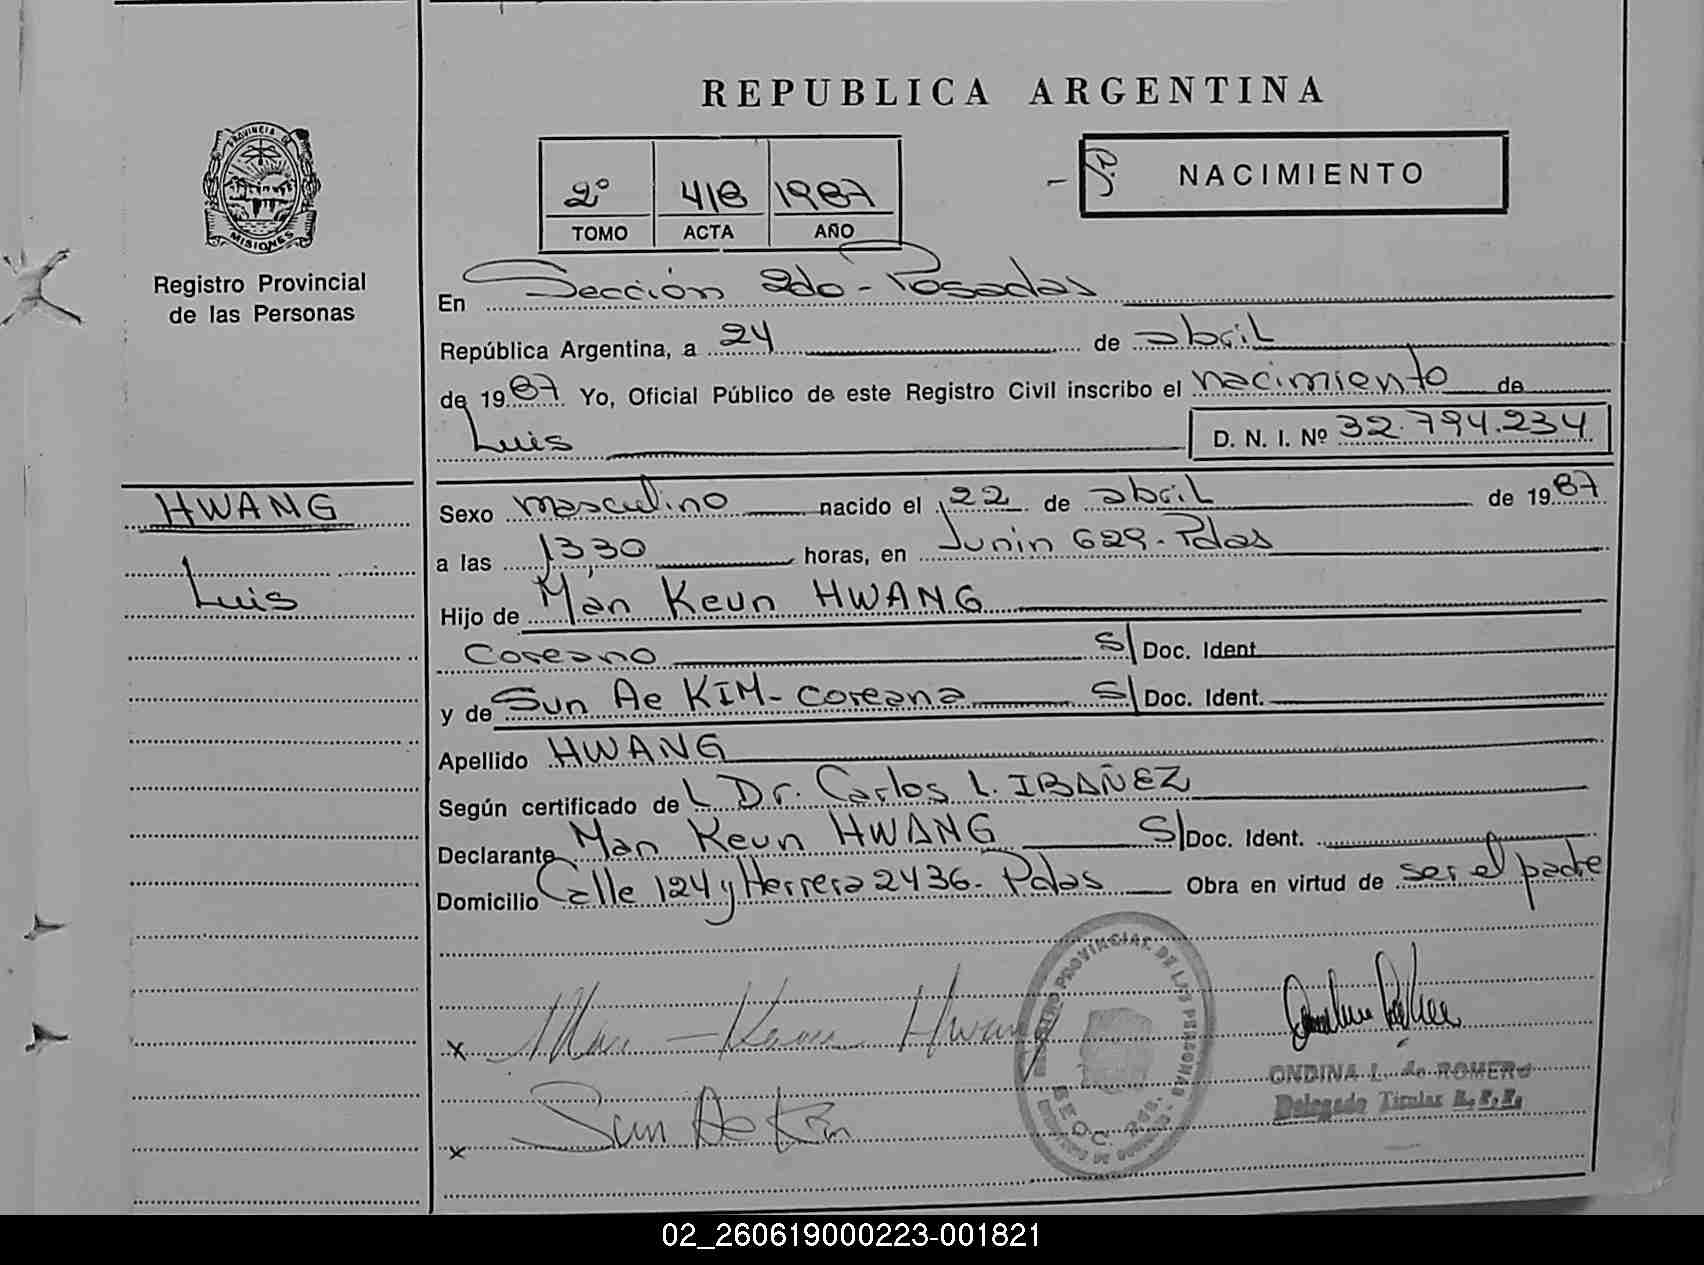 REPUBLICA ARGENTINA
PROVINCIA DE
MISIONES
Registro Provincial
de las Personas
2º 418 1987
TOMO ACTA AÑO
NACIMIENTO
En Sección 2da - Posadas
República Argentina, a 24 de abril
de 1987 Yo, Oficial Público de este Registro Civil inscribo el nacimiento de
Luis D. N. I. Nº 32.794.234
HWANG
Luis
Sexo masculino nacido el 22 de abril de 1987
a las 13,30 horas, en Junin 629 - Pdas
Hijo de Man Keun HWANG
Coreano S/ Doc. Ident.
y de Sun Ae KIM - coreana S/ Doc. Ident.
Apellido HWANG
Según certificado del Dr. Carlos L. IBAÑEZ
Declarante Man Keun HWANG S/ Doc. Ident.
Domicilio Calle 124 y Herrera 2436 - Pdas Obra en virtud de ser el padre
x Man - Keun Hwang
x Sun Ae Kim
REGISTRO PROVINCIAL DE LAS PERSONAS
SECC.
ONDINA L. de ROMERO
Delegado Titular R. P. P.
02_260619000223-001821